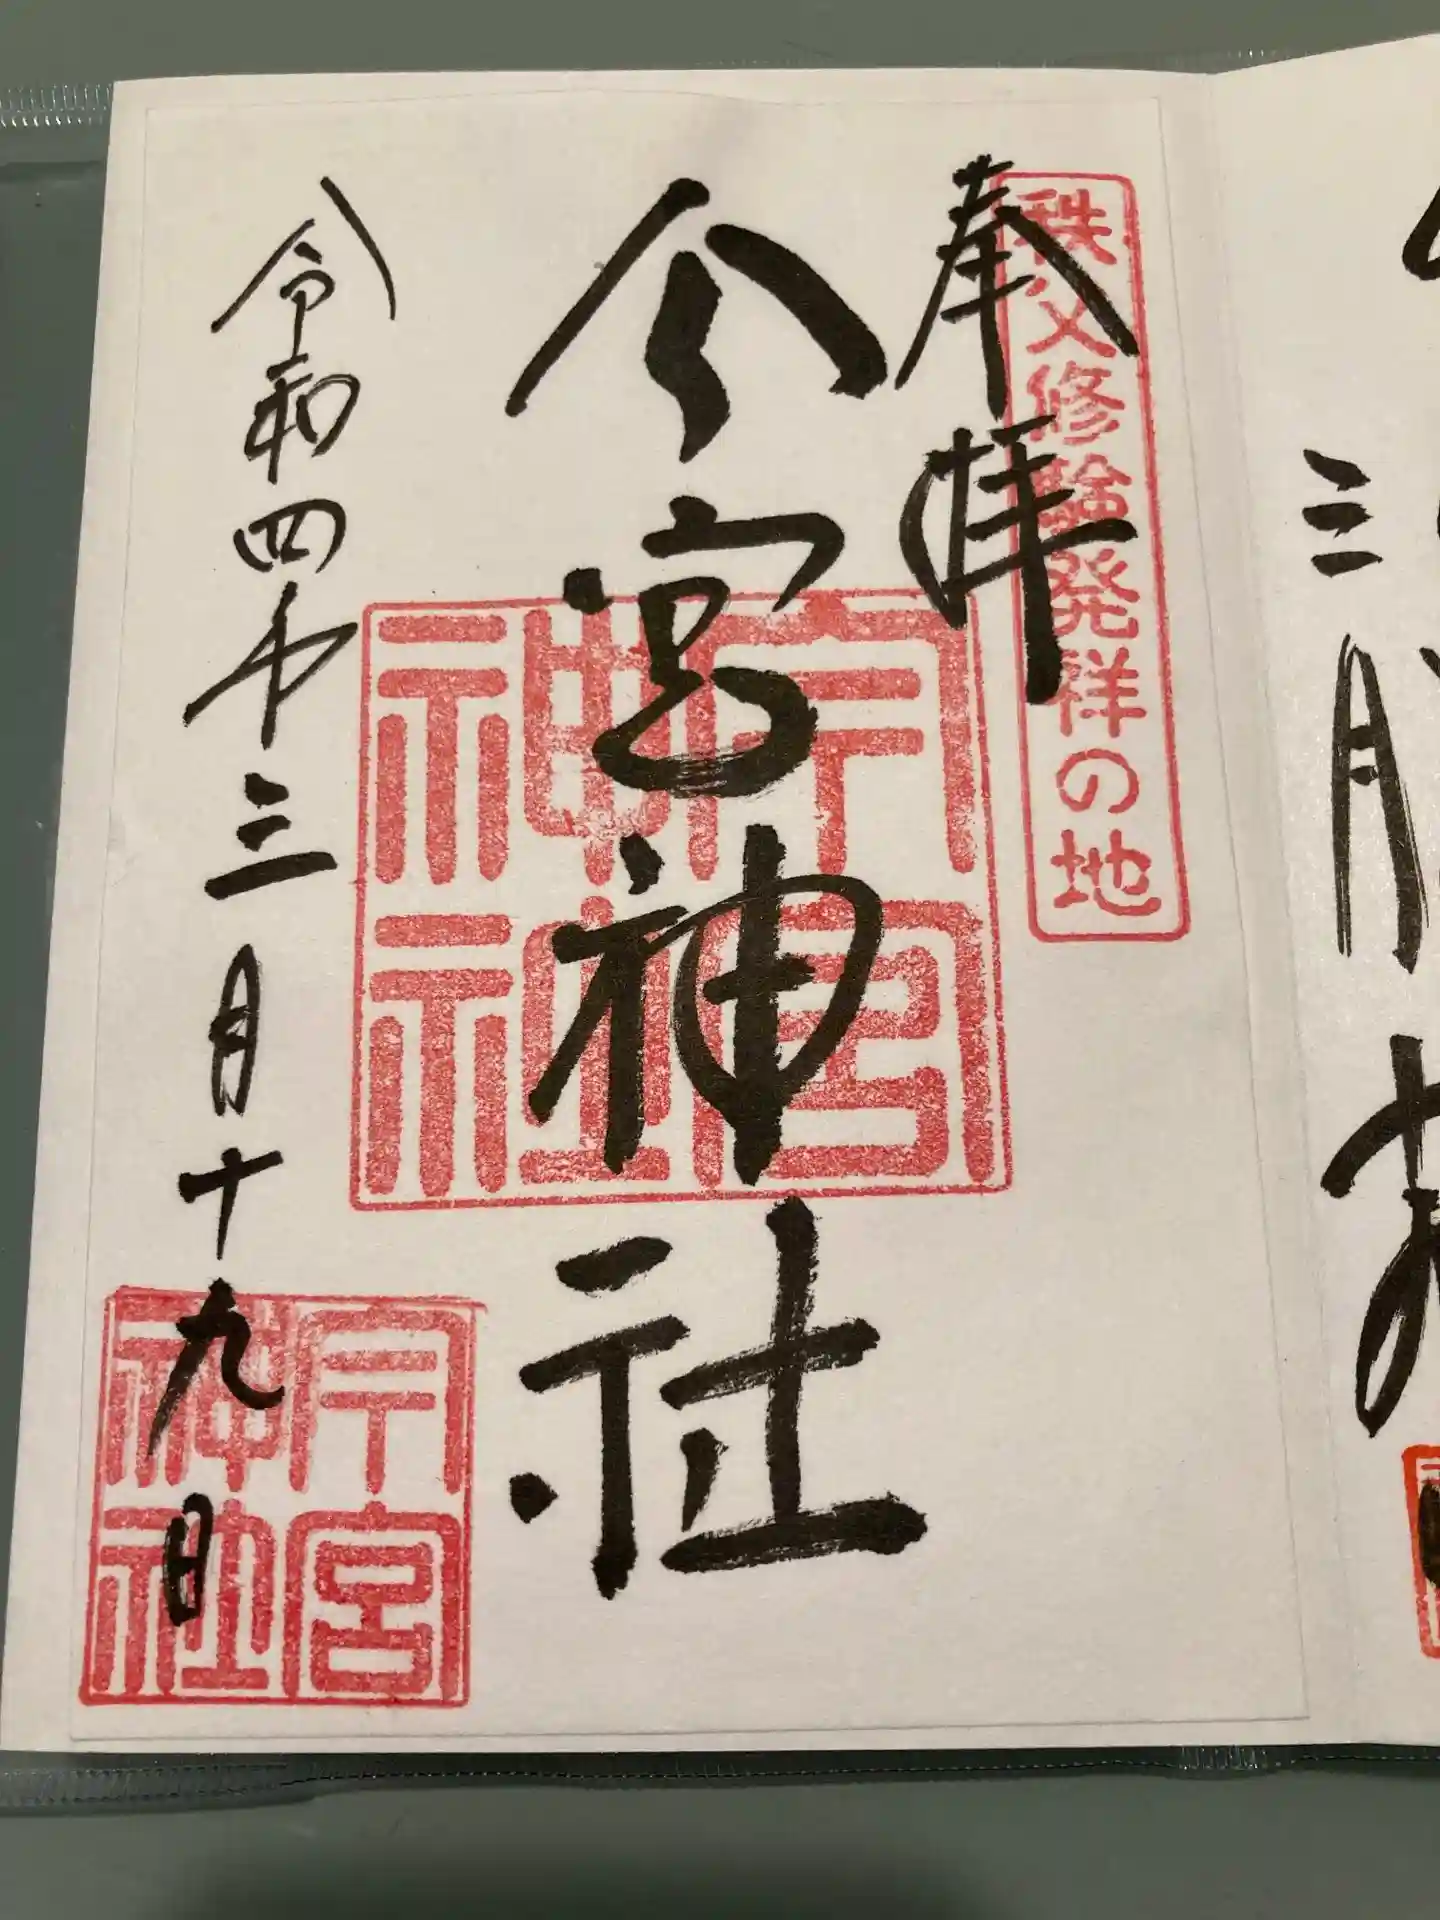 秩父修験発祥の地
奉拝
今宮神社
今宮神社
令和四年三月十九日
今宮神社
三月